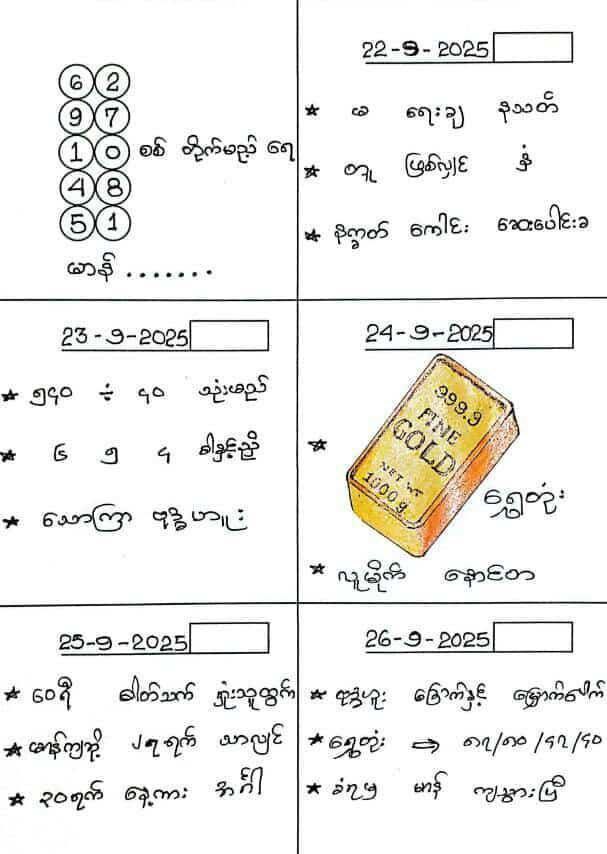 6 2
9 7
1 0 စစ် တိုက်မည် ရေ
4 8
5 1
မာန် .......
22-9-2025
★ မ ရေးချ နသတ်
★ တူ ဖြစ်လျှင် နှံ
★ နက္ခတ် ကေါင်း ဆေးပေါင်းခ
23-9-2025
★ ၅၄၀ ÷ ၄၀ သုံးမည်
★ ၆ ၅ ၄ ခါနှင့်ညှိ
★ သောကြာ ဗုဒ္ဓဟူး
24-9-2025
★ 999.9
FINE
GOLD
NET WT
1000 g
ရွှေတုံး
★ လူမိုက် နောင်တ
25-9-2025
★ ၆၀ရီ ဓါတ်သက် ရှုံးသူထွက်
★ မာန်ကျဘို့ ၂၇ရက် သာလျှင်
★ ၃၀ရက် နေ့ကား အင်္ဂါ
26-9-2025
★ ဗုဒ္ဓဟူး ခြောက်နှင့် မြှောက်ပေါက်
★ ရွှေတုံး ⇨ ၈၇/၈၀/၄၇/၄၀
★ မာန် ကျသွားပြီ